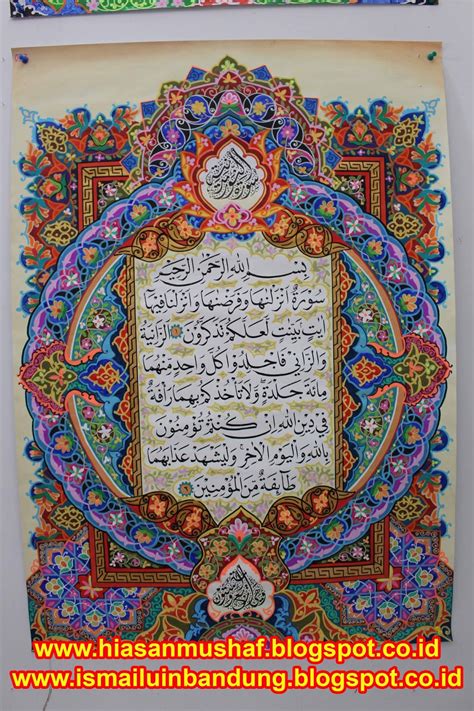 بِسْمِ اللهِ الرَّحْمٰنِ الرَّحِيْمِ
سُوْرَةٌ اَنْزَلْنٰهَا وَفَرَضْنٰهَا وَاَنْزَلْنَا فِيْهَا
اٰيٰتٍ بَيِّنٰتٍ لَّعَلَّكُمْ تَذَكَّرُوْنَ ١ اَلزَّانِيَةُ
وَالزَّانِيْ فَاجْلِدُوْا كُلَّ وَاحِدٍ مِّنْهُمَا
مِائَةَ جَلْدَةٍ وَّلَا تَأْخُذْكُمْ بِهِمَا رَأْفَةٌ
فِيْ دِيْنِ اللهِ اِنْ كُنْتُمْ تُؤْمِنُوْنَ
بِاللهِ وَالْيَوْمِ الْاٰخِرِ وَلْيَشْهَدْ عَذَابَهُمَا
طَاۤئِفَةٌ مِّنَ الْمُؤْمِنِيْنَ ٢
www.hiasanmushaf.blogspot.co.id
www.ismailuinbandung.blogspot.co.id